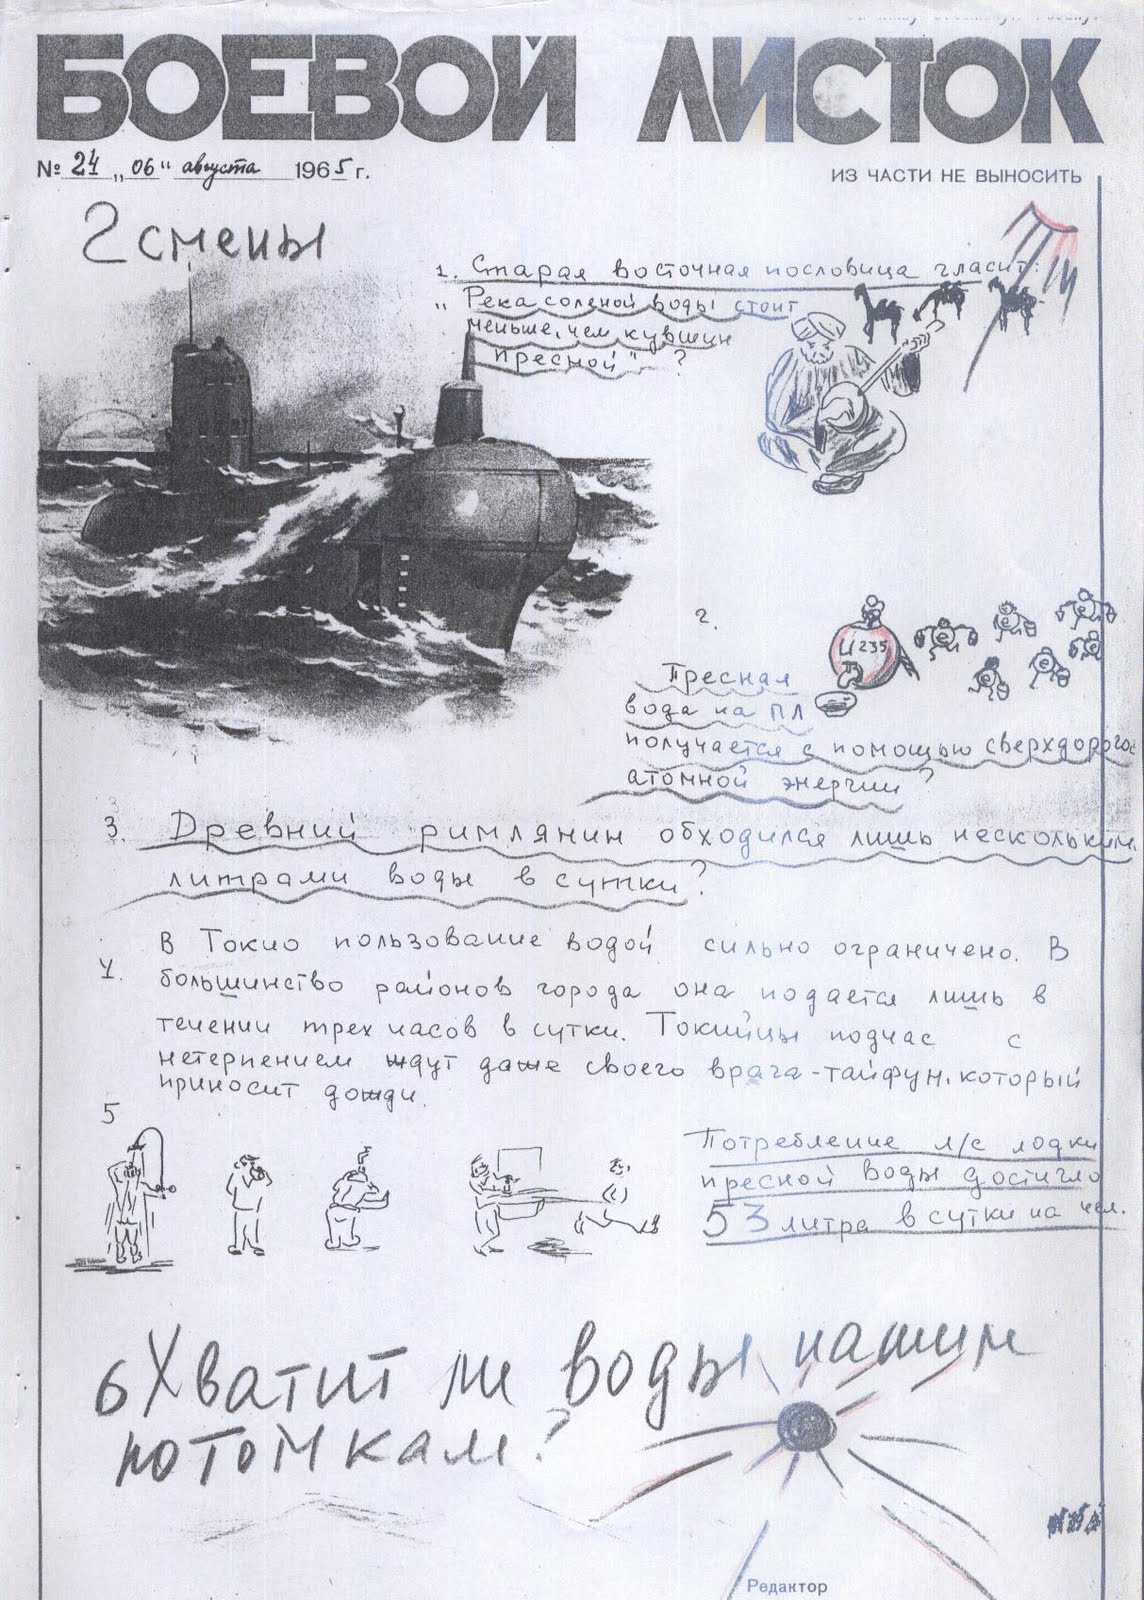 БОЕВОЙ ЛИСТОК
№ 24 „06" августа 1965 г.
ИЗ ЧАСТИ НЕ ВЫНОСИТЬ
2 смены
1. Старая восточная пословица гласит:
„Река соленой воды стоит
меньше, чем кувшин
пресной"?
2.
U 235
Пресная
вода на ПЛ
получается с помощью сверхдорогой
атомной энергии?
3. Древний римлянин обходился лишь несколькими
литрами воды в сутки?
4. В Токио пользование водой сильно ограничено. В
большинство районов города она подается лишь в
течении трех часов в сутки. Токийцы подчас с
нетерпением ждут даже своего врага-тайфун, который
приносит дожди.
5
Потребление л/с лодки
пресной воды достигло
53 литра в сутки на чел.
6 Хватит ли воды нашим
потомкам?
Редактор